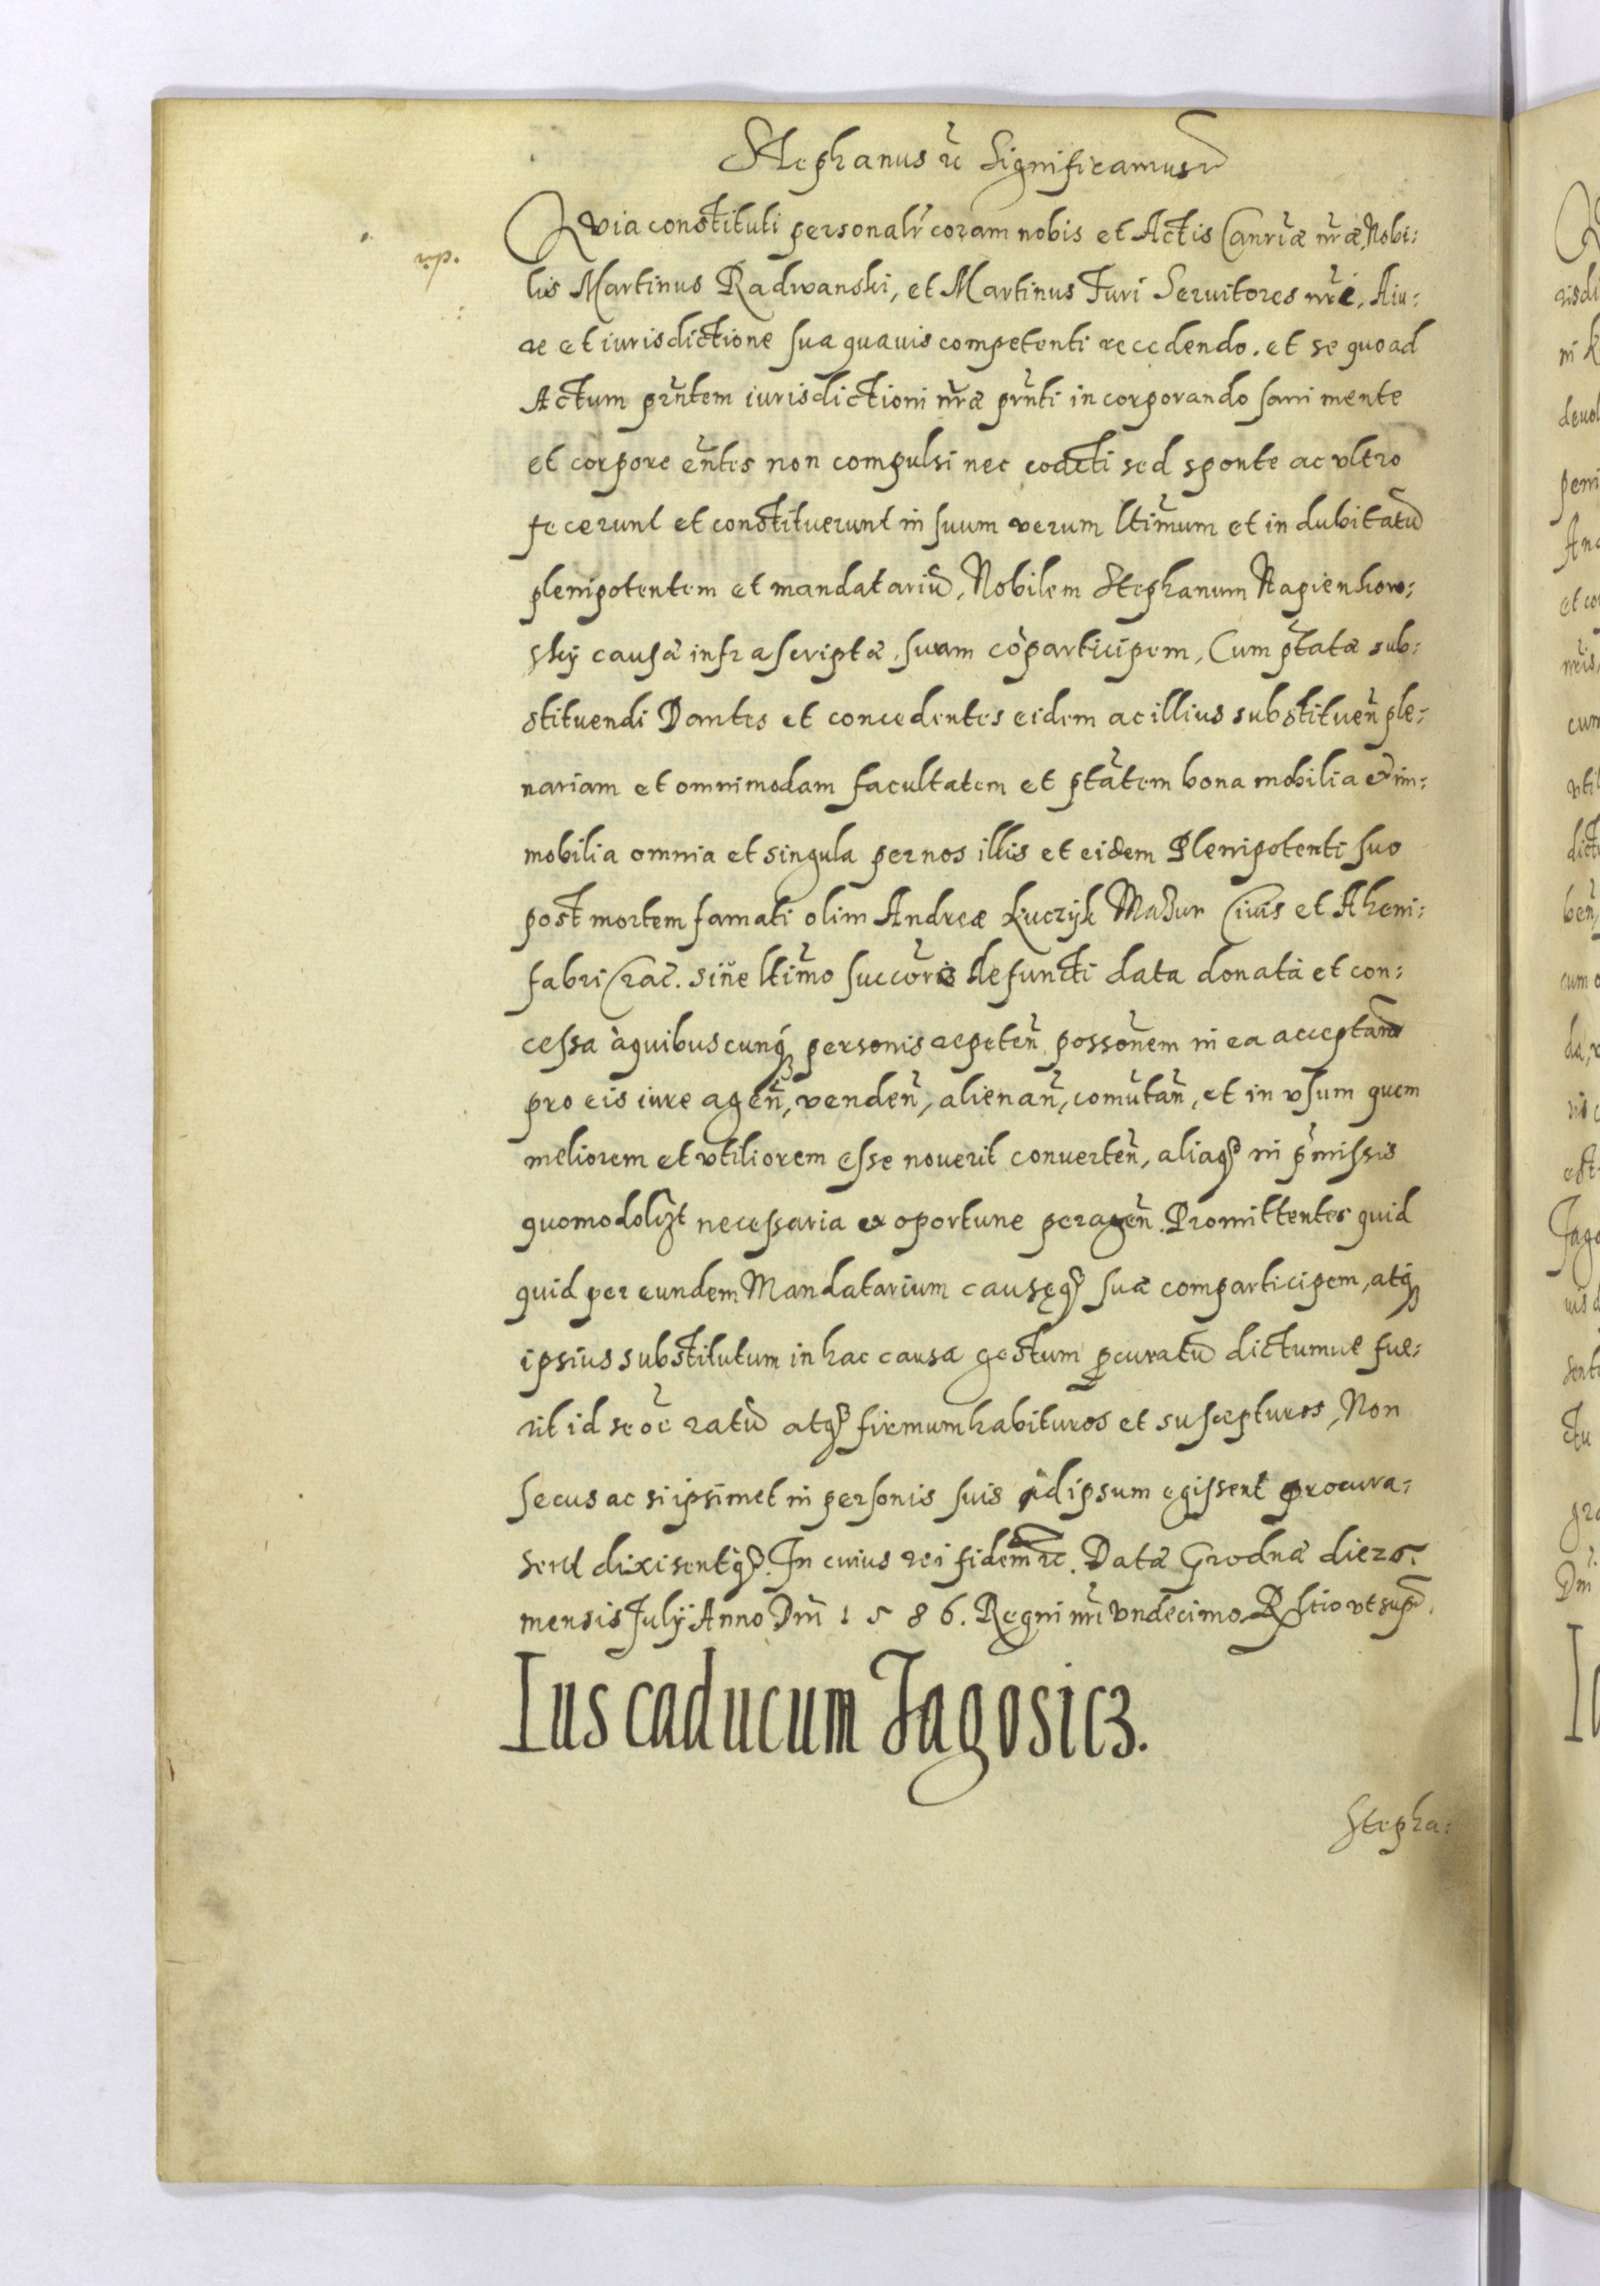 Stephanus rc Significamus rc
Qvia constituti personalr coram nobis et Actis Canriæ nræ, Nobi:
rp.
lis Martinus Radwanski, et Martinus Turi Seruitores nri, A iu:
re et iurisdictione sua quauis competenti recedendo. et se quoad
Actum prntem iurisdictioni nræ prnti incorporando sani mente
et corpore entes non compulsi nec coacti sed sponte ac vltro
fecerunt et constituerunt in suum verum ltimum et indubitatũ
plenipotentem et mandatariũ, Nobilem Stephanum Napienkow:
skÿ causæ infrascriptæ, suum cõparticipem, Cum ptatæ sub:
stituendi Dantes et concedentes eidem ac illius substitueñ ple:
nariam et omnimodam facultatem et ptatem bona mobilia et im:
mobilia omnia et singula per nos illis et eidem Plenipotenti suo
post mortem famati olim Andreæ Łuczÿk Mazur Ciuis et Aheni:
fabri Crac. sine ltimo succoris defuncti data donata et con:
cessa à quibuscunq personis repeteñ possonem in ea acceptañ
pro eis iure ageñ, vendeñ, alienañ, comutañ, et in vsum quem
meliorem et vtiliorem esse nouerit conuerteñ, aliaq in pmissis
quomodolizt necessaria ex oportune perageñ. Promittentes quid
quid per eundem Mandatarium causęq suæ comparticipem, atq
ipsius substitutum in hac causa gestum pcuratũ dictumue fue:
rit id se oe ratũ atq firmum habituros et suscepturos, Non
secus ac si ipsimet in personis suis idipsum egissent procura:
sent dixisentq. In cuius rei fidem rc. Datæ Grodnæ die 20.
mensis Julÿ Anno Dni 1586. Regni nri vndecimo. Rstio vt supra.
Ius caducum Jagosicz.
Stepha: